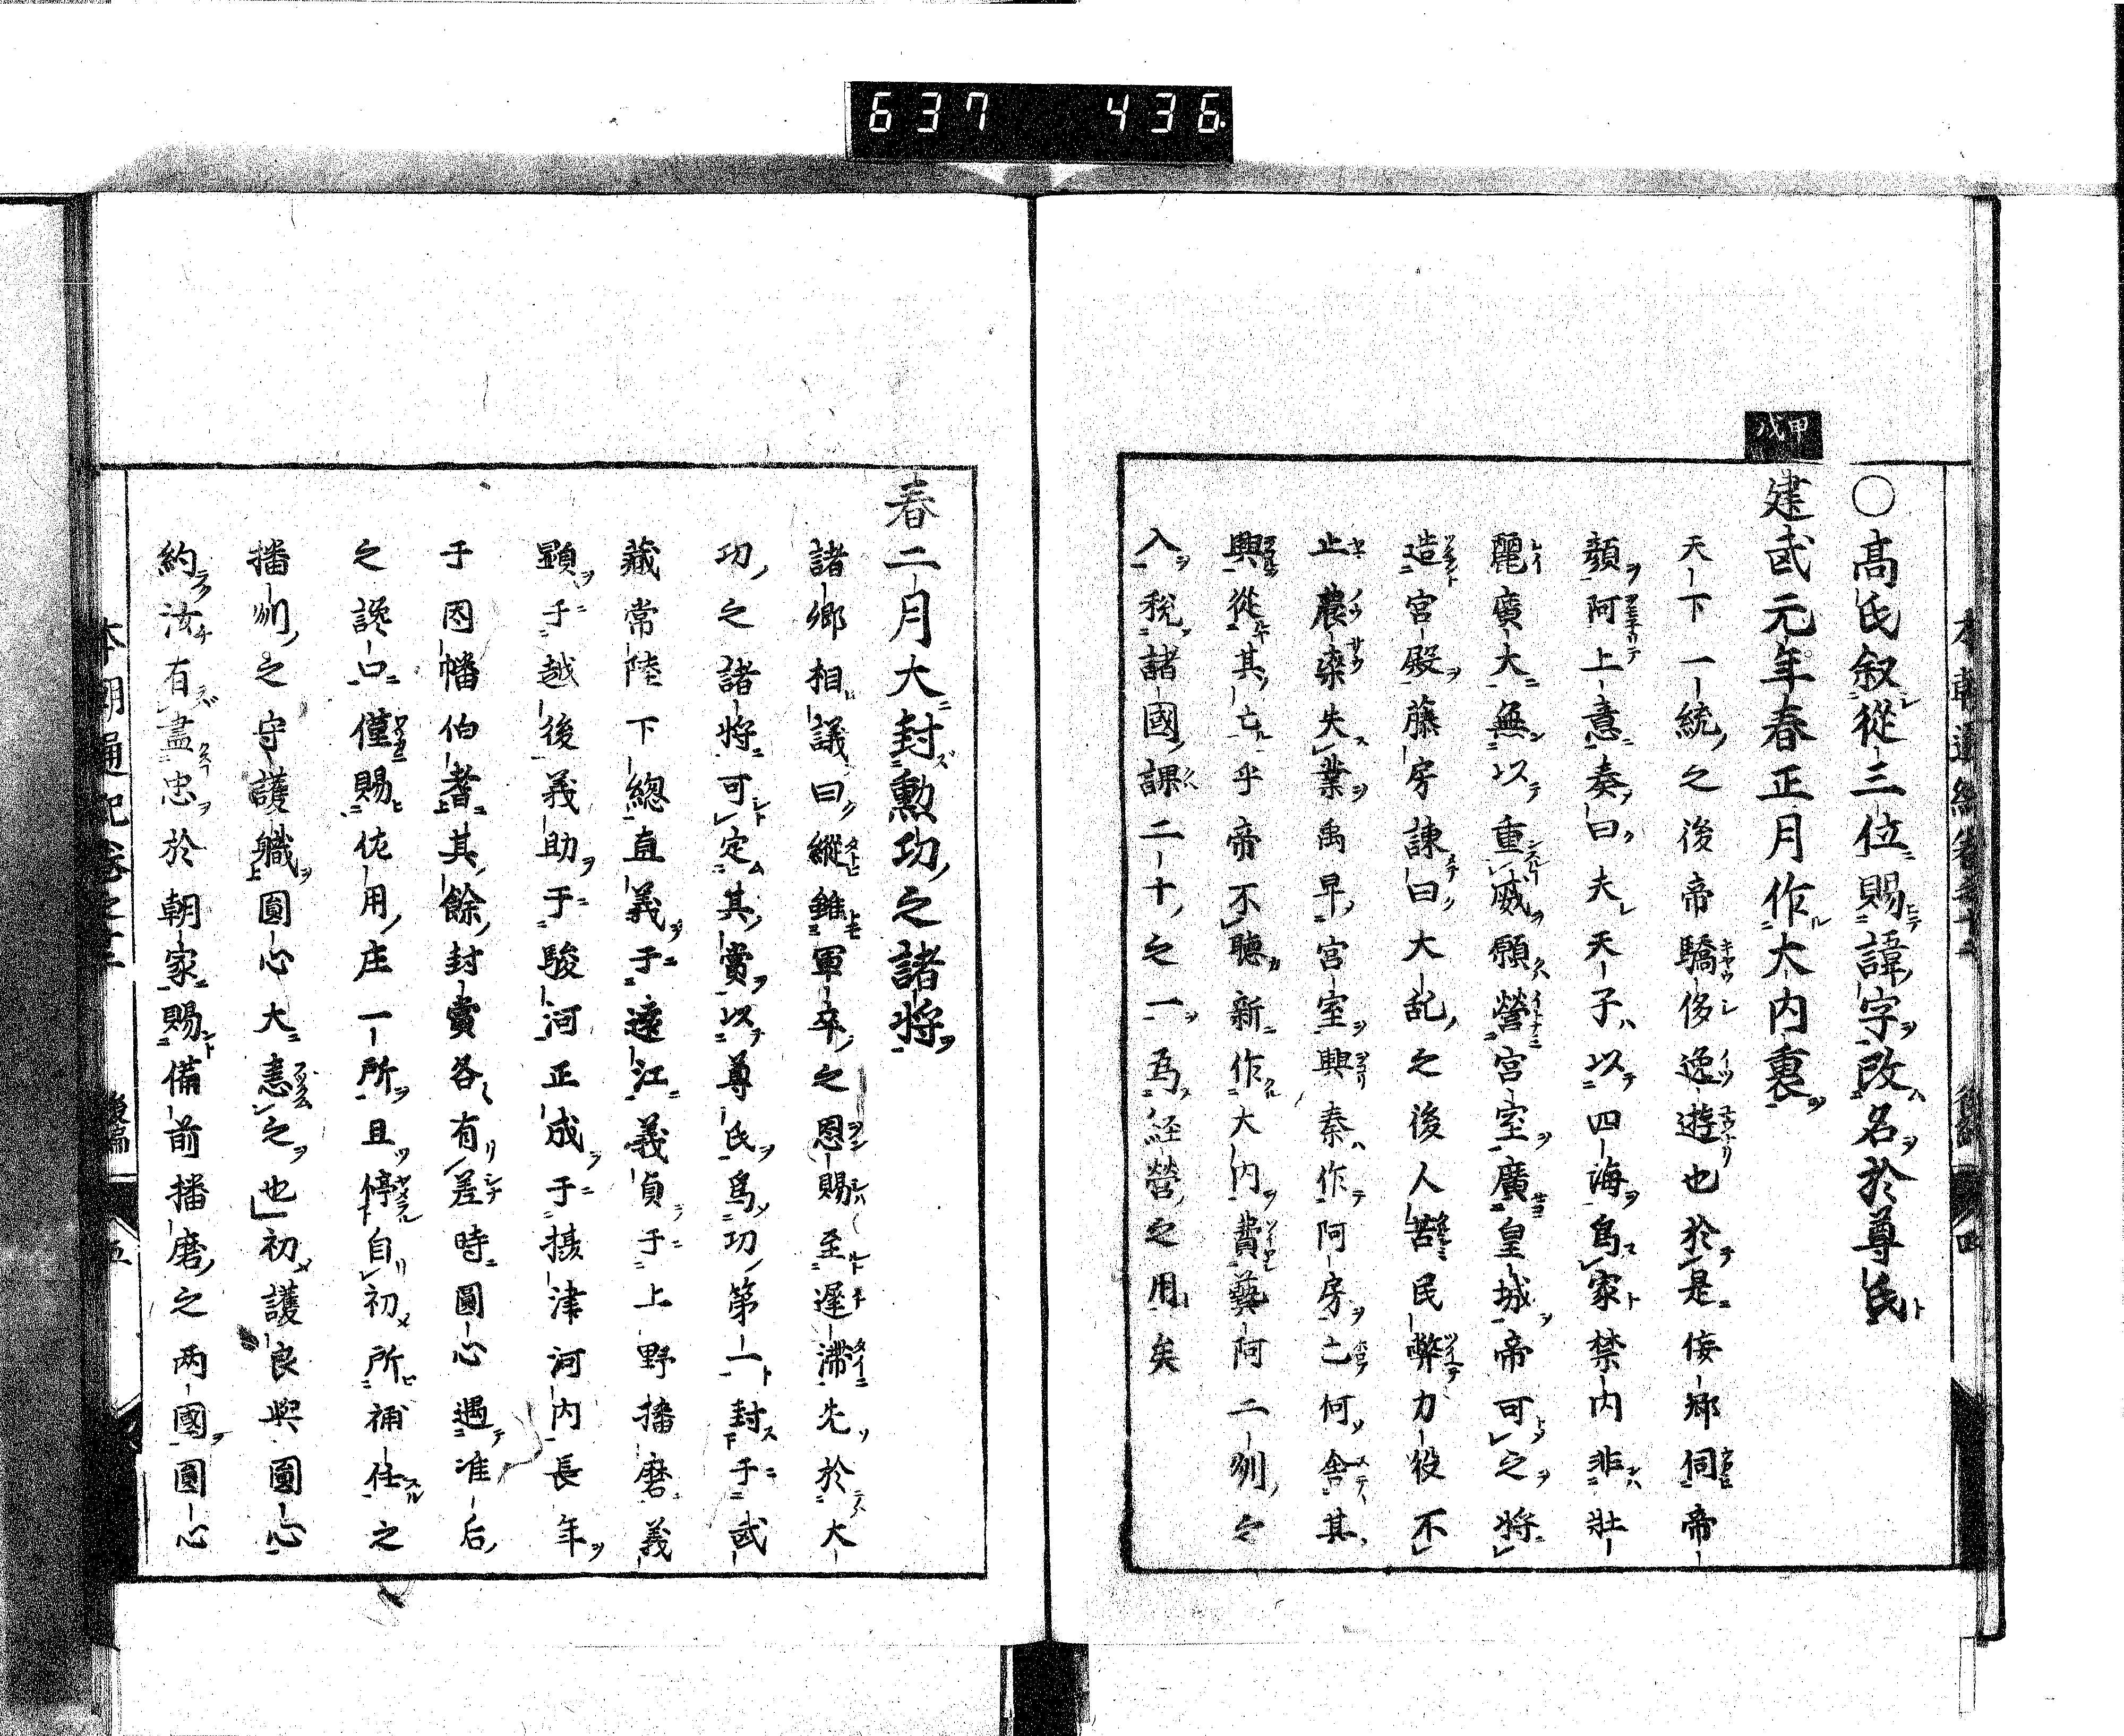 637 436
〇高氏叙從三位賜諱字改名於尊氏
甲戌
建武元年春正月作大内裏
天下一統之後帝驕侈逸遊也於是佞卿伺帝
顔阿上意奏曰夫天子以四海爲家禁内非壯
麗廣大無以重威願營宮室廣皇城帝可之將
造宮殿藤房諌曰大乱之後人苦民弊力役不
止農桒失業禹卑宮室興秦作阿房亡何舎其
興從其亡乎帝不聽新作大内費藝阿二州之
入税諸國課二十之一爲経營之用矣
春二月大封勲功之諸将
諸卿相議曰縱雖軍卒之恩賜至遅滞先於大
功之諸将可定其賞以尊氏爲功第一封于武
藏常陸下總直義于遠江義貞于上野播磨義
顕于越後義助于駿河正成于摂津河内長年
于因幡伯耆其餘封賞各有差時圓心遇准后
之讒口僅賜佐用庄一所且停自初所補任之
播州之守護職圓心大恚之也初護良與圓心
約汝有盡忠於朝家賜備前播磨之両國圓心
本朝通紀巻之十二 後編 五